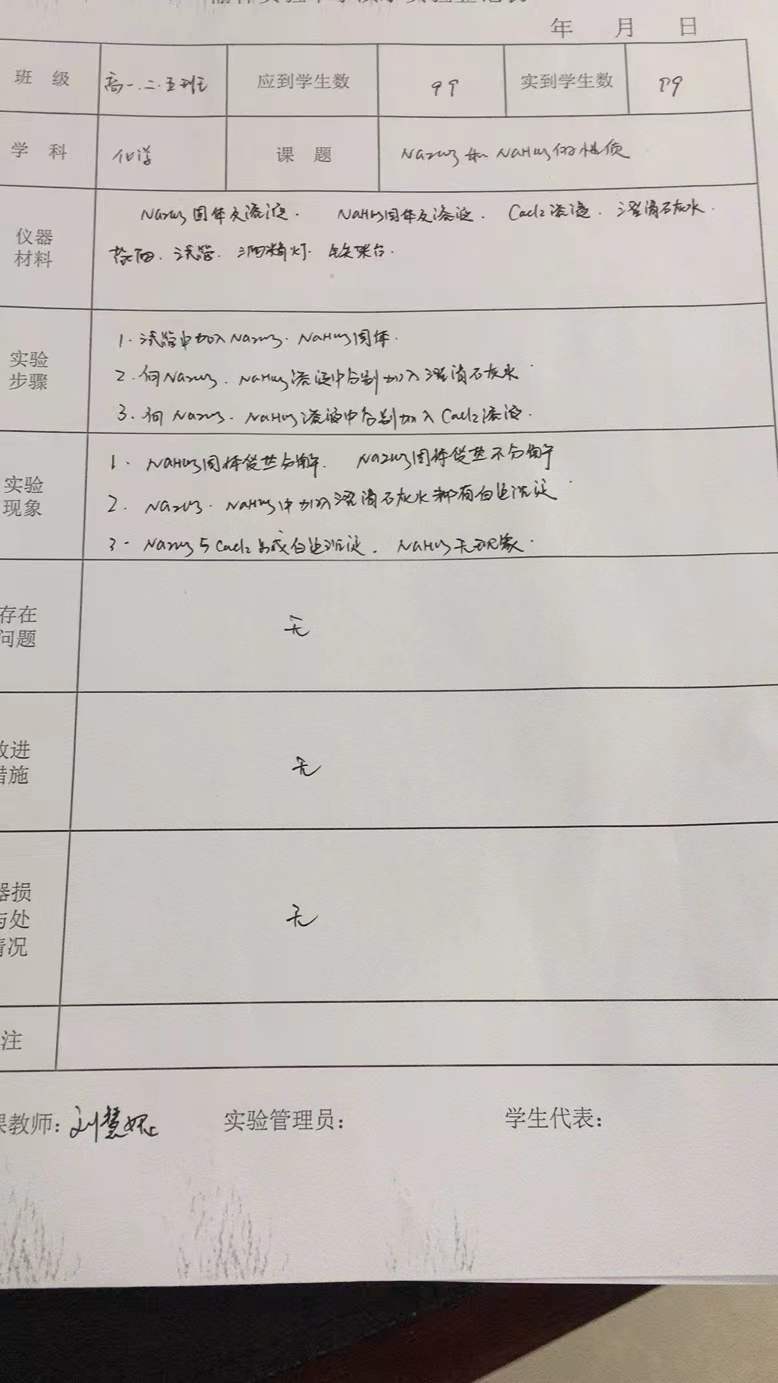 年 月 日
班 级 高一.二.五班 应到学生数 99 实到学生数 99
学 科 化学 课 题 Na2CO3和NaHCO3的性质
仪器材料
Na2CO3固体及溶液. NaHCO3固体及溶液. CaCl2溶液. 澄清石灰水.
试管. 酒精灯. 铁架台.
实验步骤
1. 试管中加入Na2CO3. NaHCO3固体.
2. 向Na2CO3. NaHCO3溶液中分别加入澄清石灰水
3. 向Na2CO3. NaHCO3溶液中分别加入CaCl2溶液.
实验现象
1. NaHCO3固体受热分解. Na2CO3固体受热不分解
2. Na2CO3. NaHCO3中加入澄清石灰水都有白色沉淀
3. Na2CO3与CaCl2生成白色沉淀. NaHCO3无现象.
存在问题 无
改进措施 无
器损
与处
情况
无
注
课教师: 刘慧 实验管理员: 学生代表: